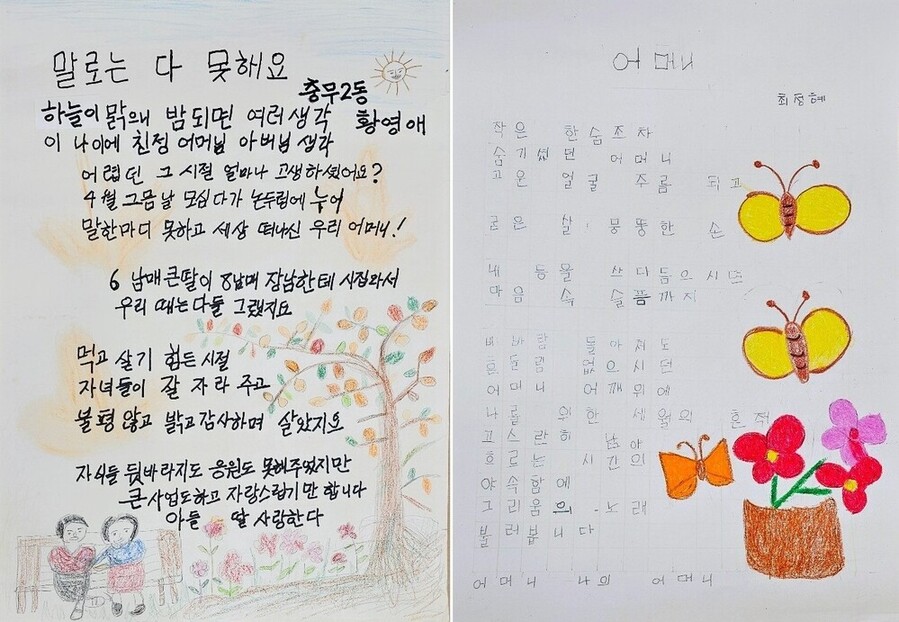 말로는 다 못해요
충무2동
황영애
하늘이 맑으니 밤되면 여러생각
이 나이에 친정 어머님 아버님 생각
어렵던 그 시절 얼마나 고생하셨어요?
4월 그믐날 모심다가 논두렁에 누어
말한마디 못하고 세상 떠나신 우리 어머니!
6 남매큰딸이 8남매 장남한테 시집와서
우리 때는다들 그랬지요
먹고 살기 힘든 시절
자녀들이 잘 자라 주고
불평 않고 밝고감사하며 살았지요
자식들 뒷바라지도 응원도 못해주었지만
큰사업도하고 자랑스럽기만 합니다
아들 딸 사랑한다
어머니
최정혜
작은 한숨조차
숨기셨던 어머니
고운 얼굴 주름 되고
굽은 살 뭉뚱한 손
내 등을 쓰다듬으시던
마음 속 슬픔까지
비바람 몰아쳐도
흔들림 없으시던
어머니 어깨위에
나를 위한 세월의 흔적
고스란히 남아
흐르는 시간의
야속함에
그리움의 노래
불러봅니다
어머니 나의 어머니